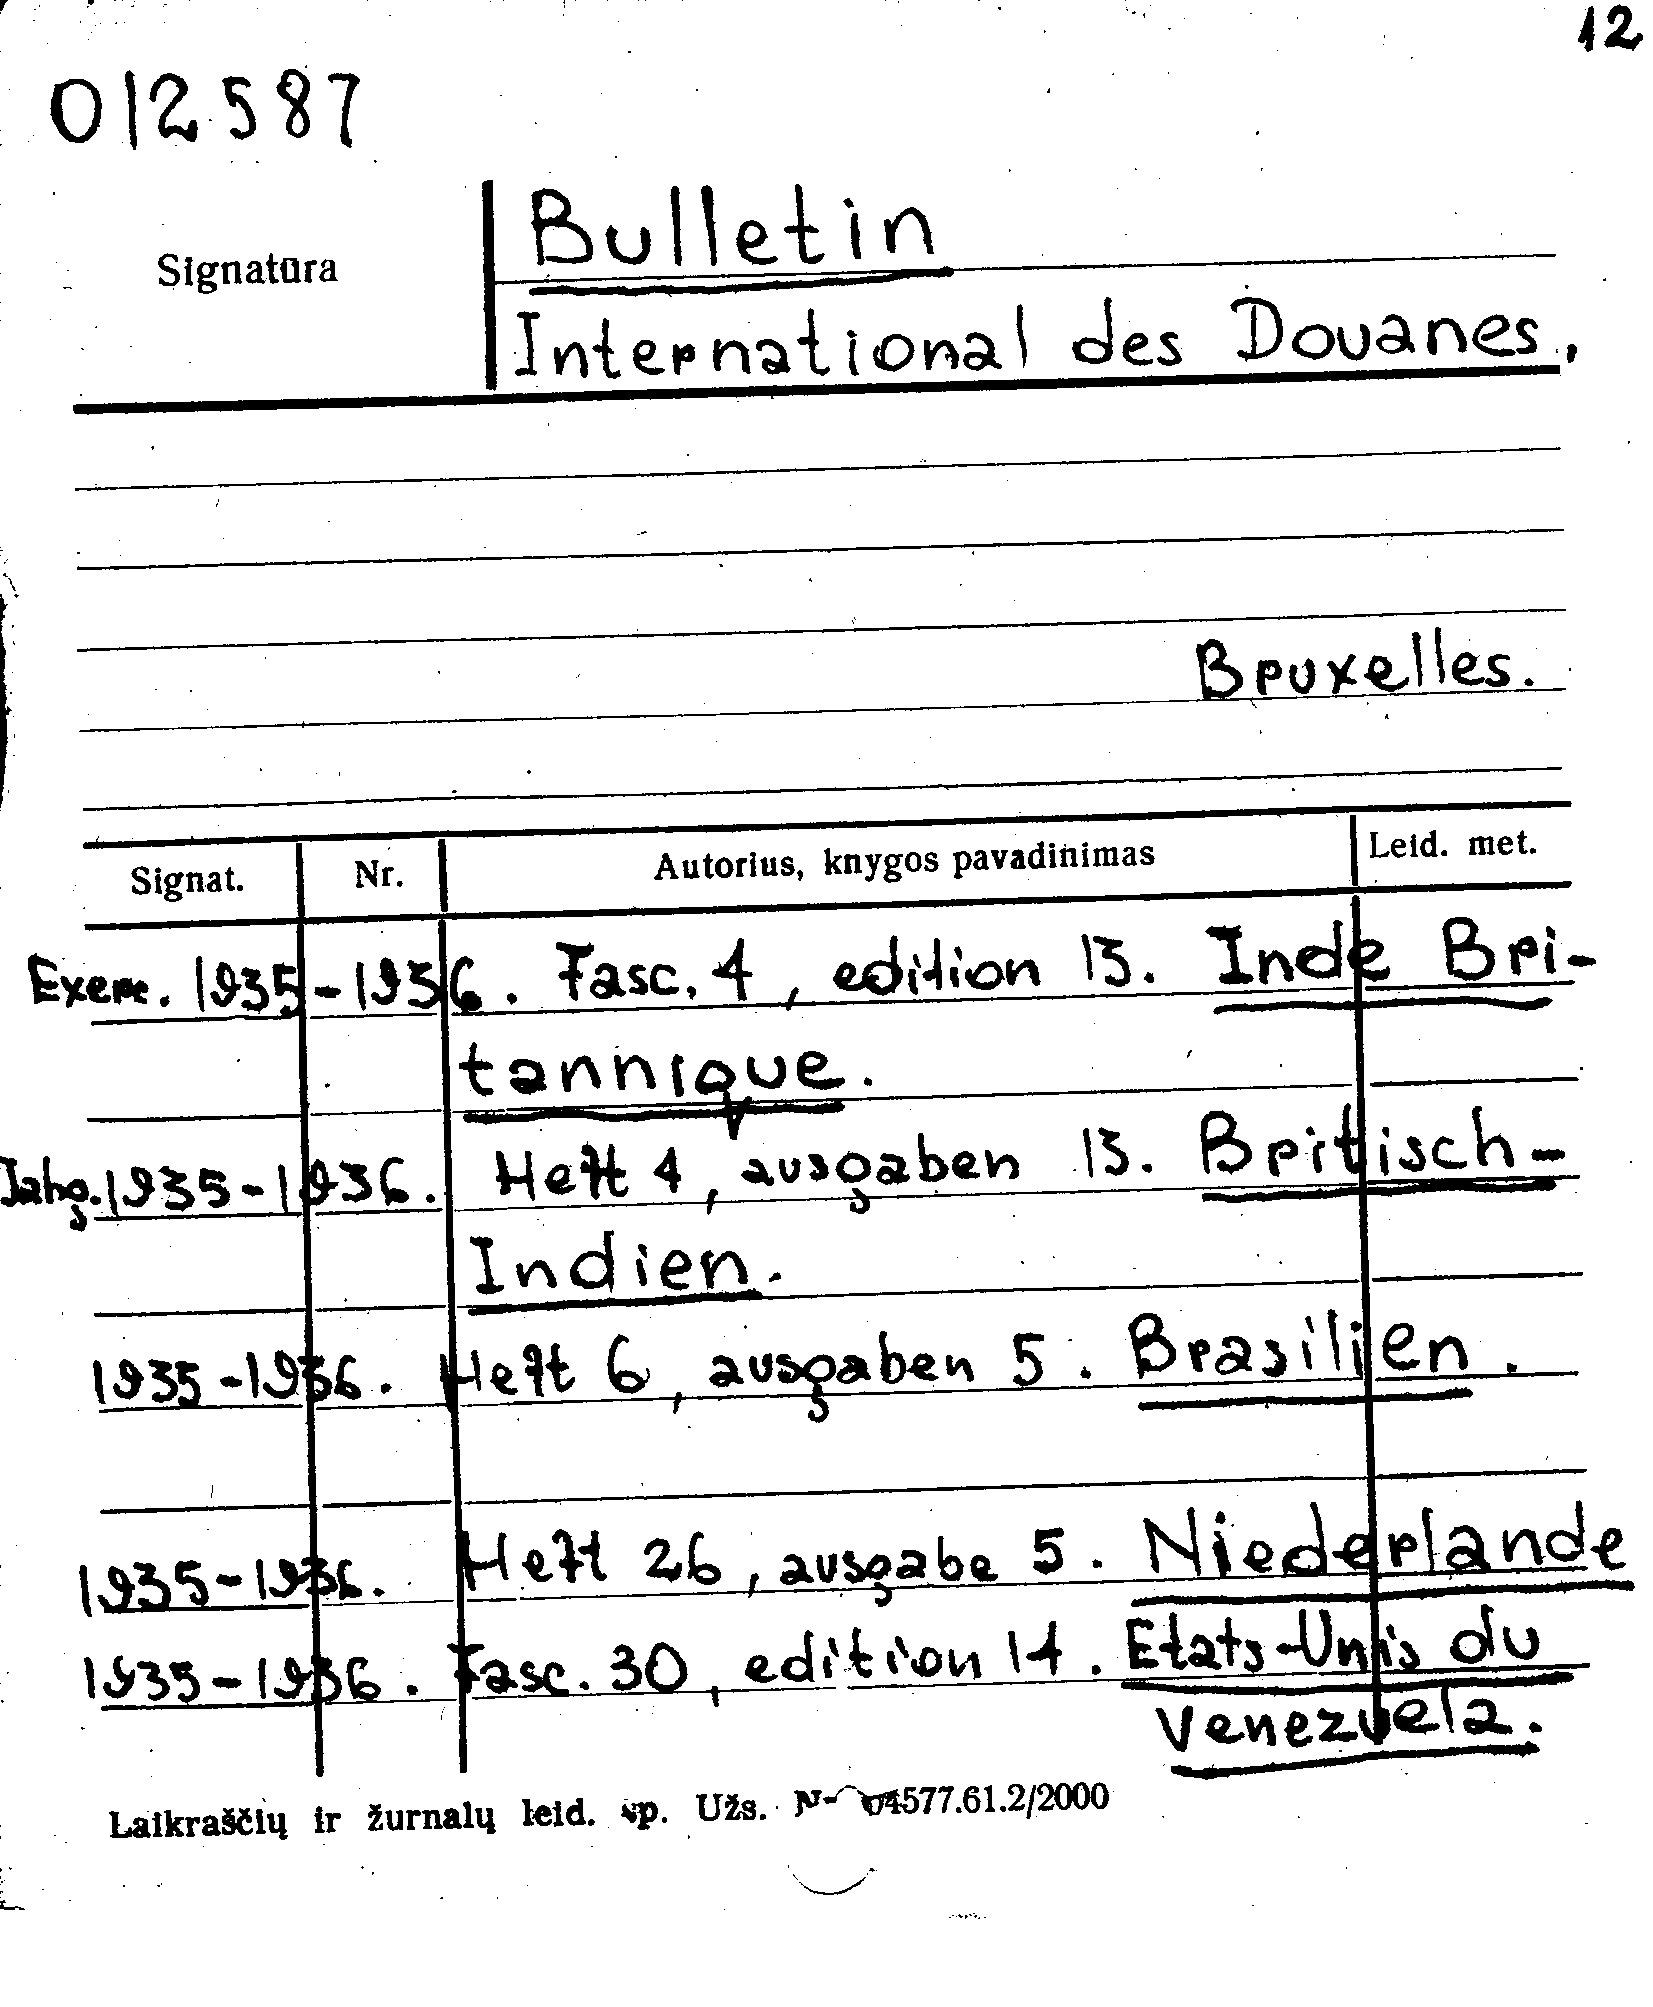 12
012587
Signatūra
Bulletin
International des Douanes,
Bruxelles.
Signat. Nr. Autorius, knygos pavadinimas Leid. met.
Exerc. 1935-1936. Fasc. 4, edition 13. Inde Bri-
tannique.
Jahg. 1935-1936. Heft 4, ausgaben 13. Britisch-
Indien.
1935-1936. Heft 6, ausgaben 5. Brasilien.
1935-1936. Heft 26, ausgabe 5. Niederlande
1935-1936. Fasc. 30, edition 14. Etats-Unis du
Venezuela.
Laikraščių ir žurnalų leid. sp. Užs. 04577.61.2/2000